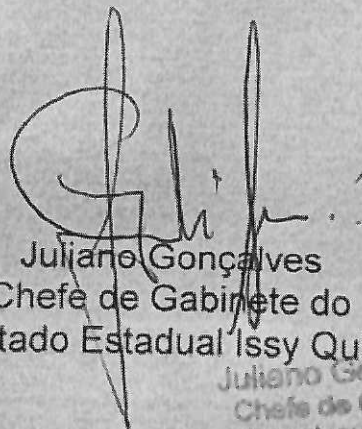 Juliano Gonçalves
Chefe de Gabinete do
tado Estadual Issy Qu
Juliano Go
Chefe de